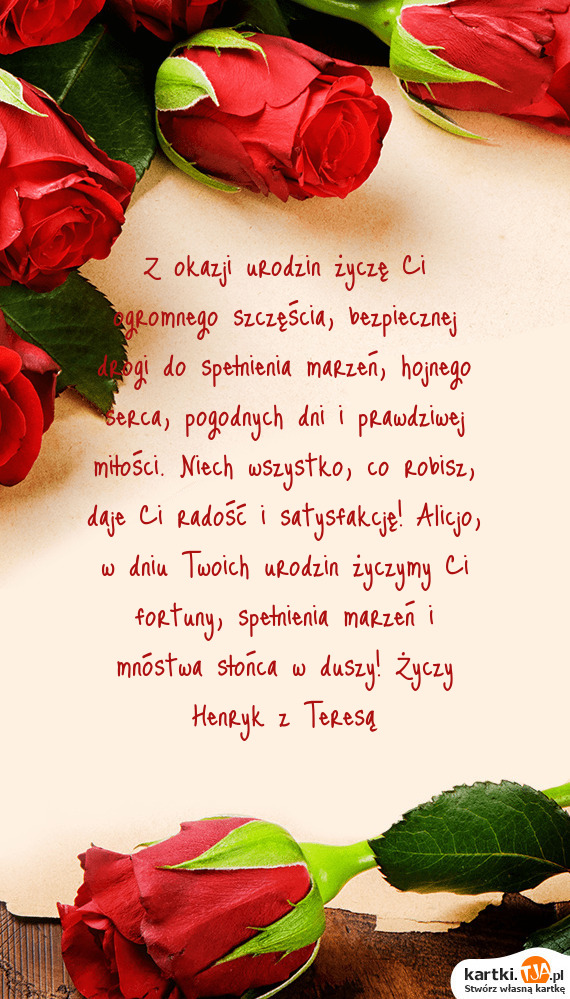 Z okazji urodzin życzę Ci
ogromnego szczęścia, bezpiecznej
drogi do spełnienia marzeń, hojnego
serca, pogodnych dni i prawdziwej
miłości. Niech wszystko, co robisz,
daje Ci radość i satysfakcję! Alicjo,
w dniu Twoich urodzin życzymy Ci
fortuny, spełnienia marzeń i
mnóstwa słońca w duszy! Życzy
Henryk z Teresą
kartki.TJA.pl
Stwórz własną kartkę